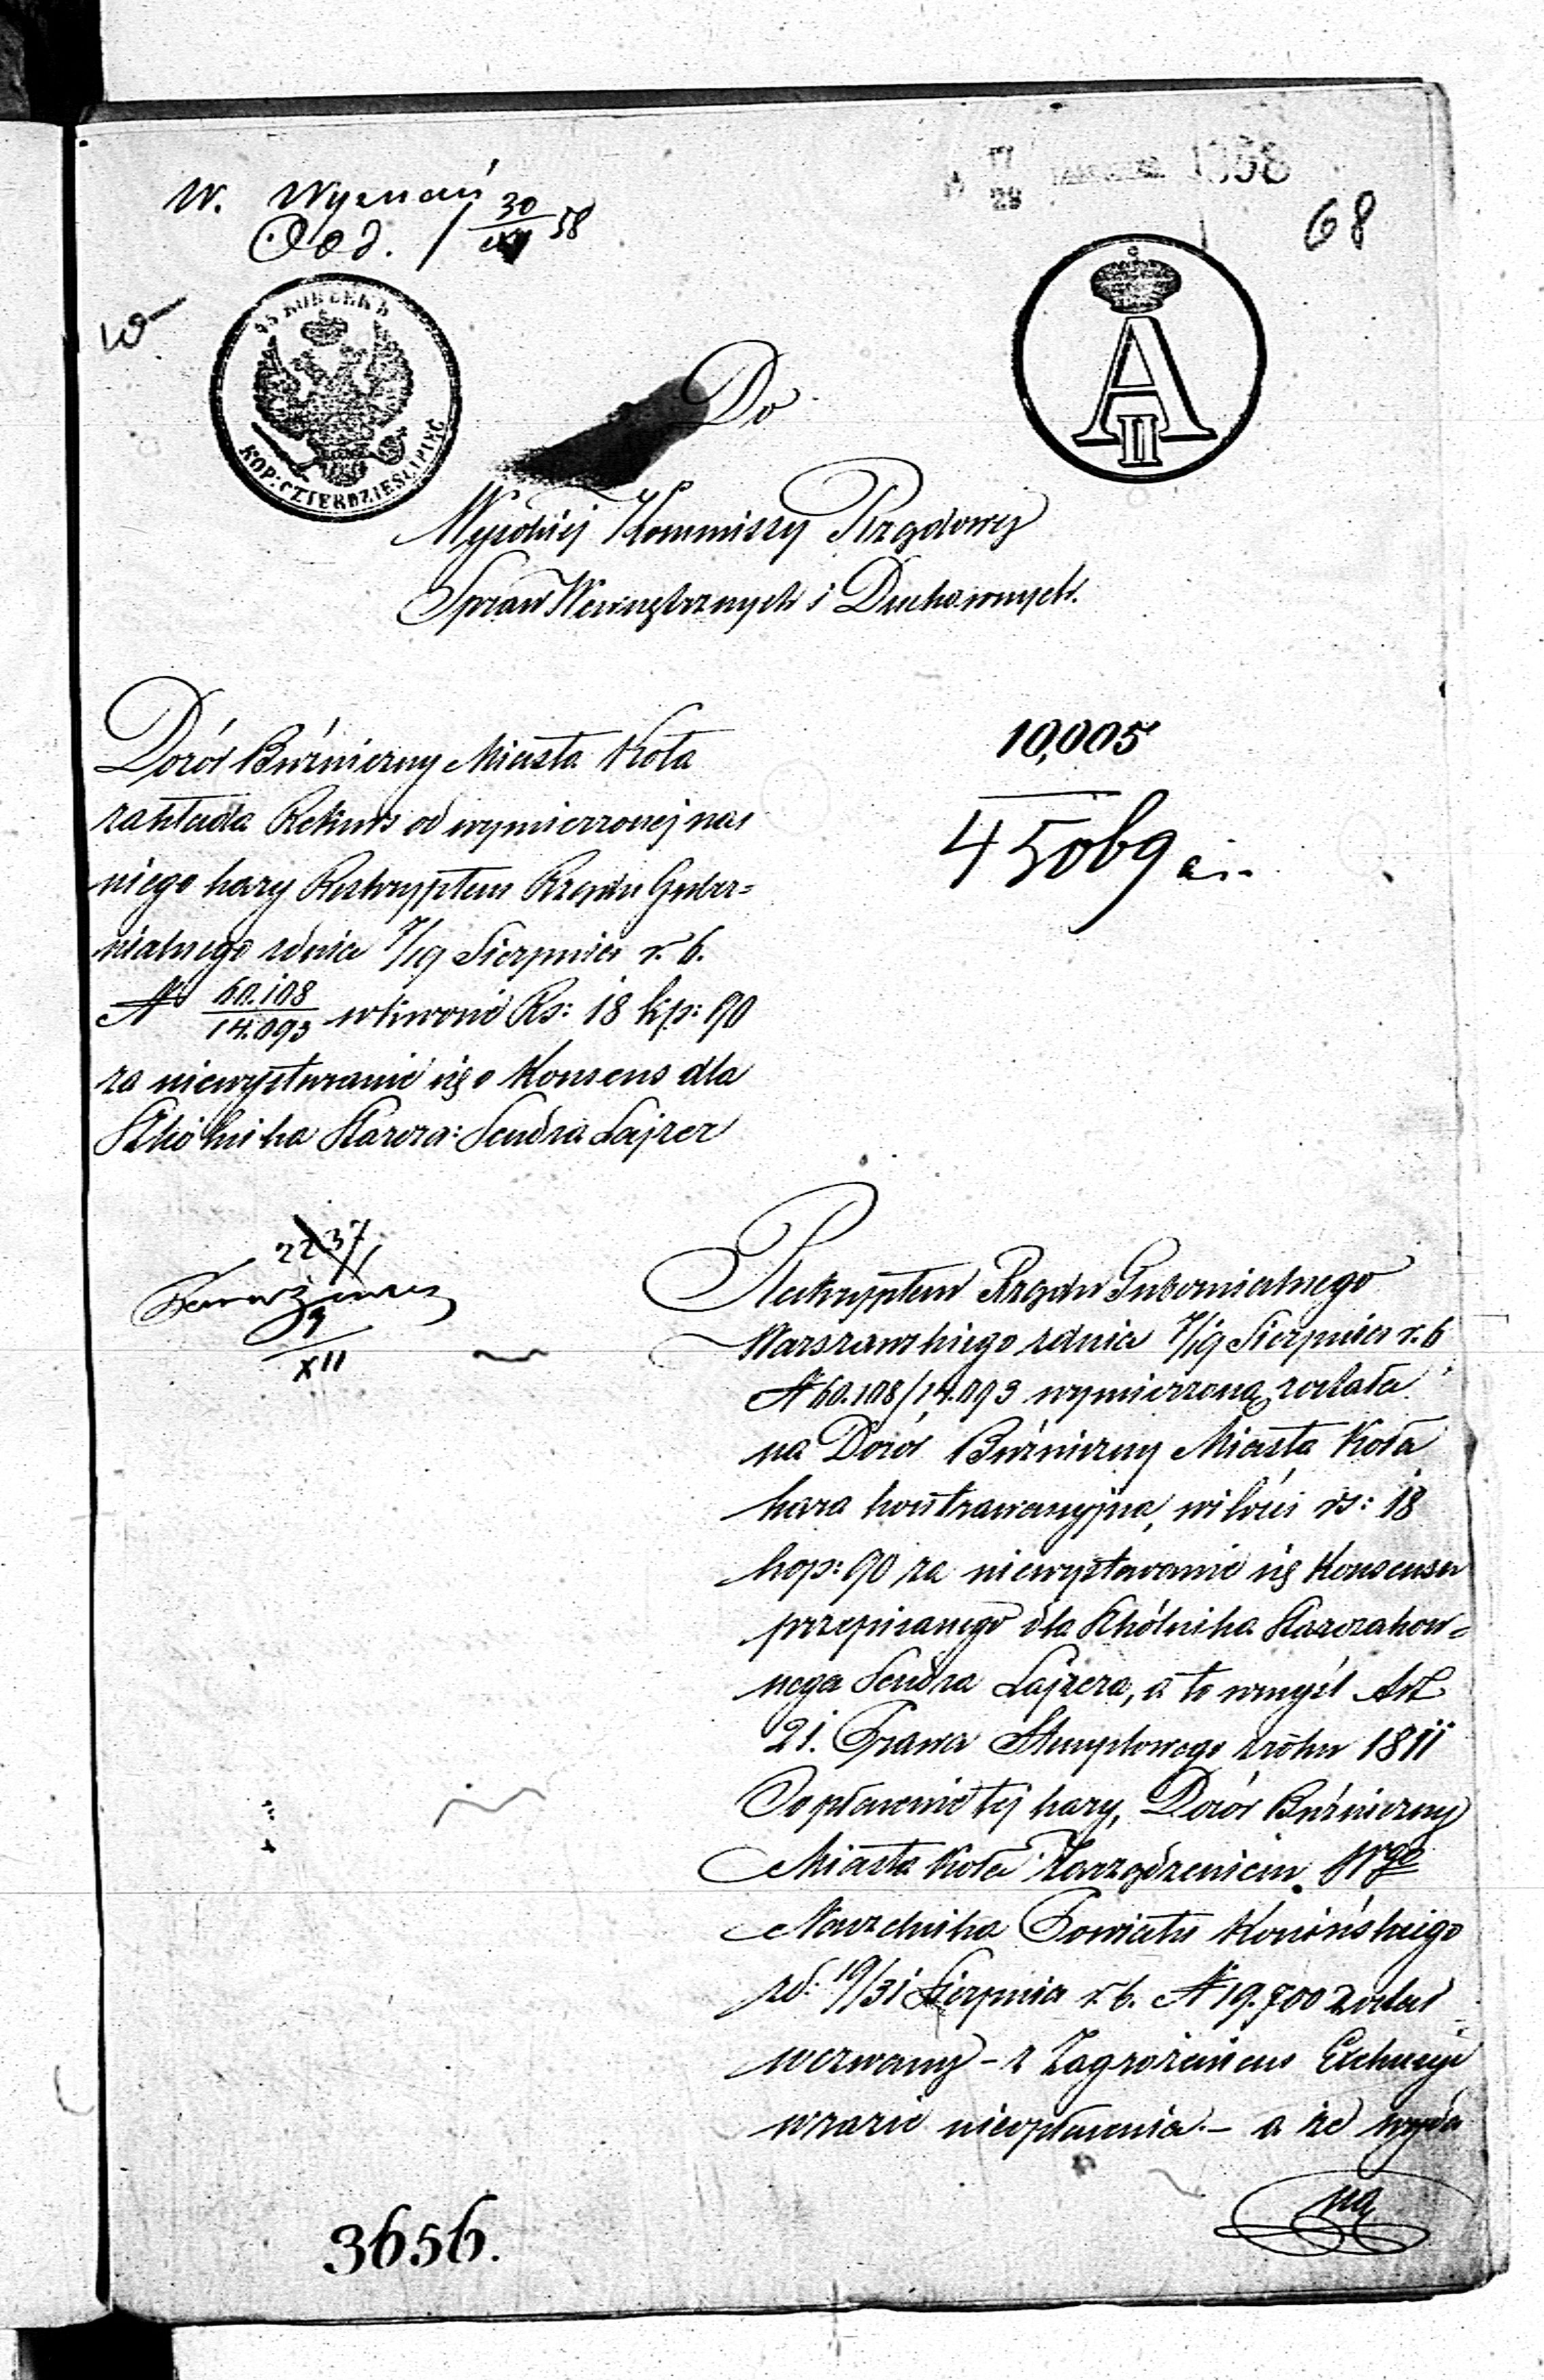 W. Wyznań
30 58
68
1858
45 KOPEEKЪ
KOP: CZTERDZIEŚCI PIĘĆ
A II
Do
Wysokiéj Kommissyi Rządowéj
Spraw Wewnętrznych i Duchownych.
Dozór Bóźniczny Miasta Koła
zakłada Rekurs od wymierzonéj na
niego kary Reskryptem Rządu Guber=
nialnego zdnia 7/19 Sierpnia r. b.
N 60.108/14.093 w kwocie Rs: 18 kp: 90
za niewystaranie się o Konsens dla
Szkólnika Zawza: Lajzer
10,005
45069
2237
9
XII
Reskryptem Rządu Gubernialnego
Warszawskiego zdnia 7/19 Sierpnia r. b
N 60.108/14.093 wymierzoną została
na Dozór Bóźniczny Miasta Koła
kara kontrawencyjna, w ilości rs: 18
kop: 90 za niewystaranie się Konsensu
przepisanego dla Szkólnika
Lajzera, a to w myśl Art
21. Prawa Stemplowego z roku 1811
O opłacenie téj kary, Dozór Bóźniczny
Miasta Koła Zarządzeniem Wgo
Naczelnika Powiatu Konińskiego
zd: 19/31 Sierpnia r. b. N 19.700 został
wezwany - z Zagrożeniem Exekucyi
w razie nieopłacenia. - a że wyda
na
3656.